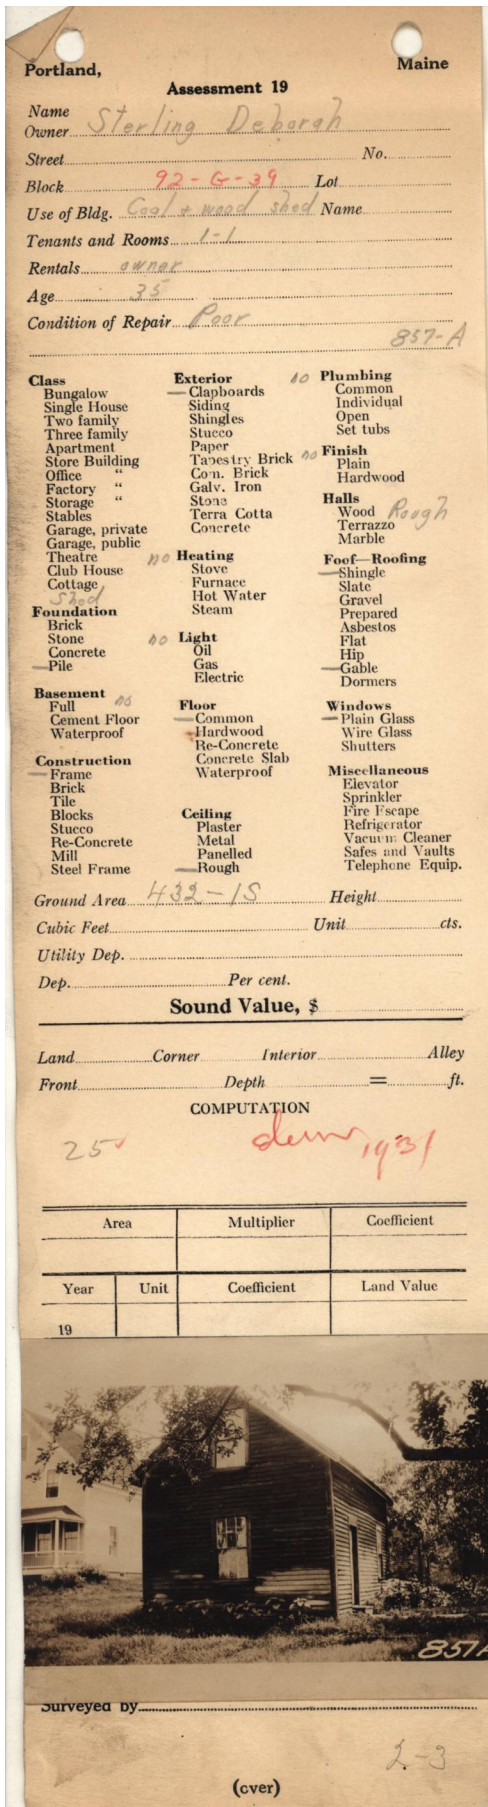 Portland, Maine
Assessment 19
Name
Owner Sterling Deborah
Street No.
Block 92-G-39 Lot
Use of Bldg. Coal + wood shed Name
Tenants and Rooms 1-1
Rentals owner
Age 35
Condition of Repair Poor
857-A
Class
Bungalow
Single House
Two family
Three family
Apartment
Store Building
Office "
Factory "
Storage "
Stables
Garage, private
Garage, public
Theatre
Club House
Cottage
Shed
Foundation
Brick
Stone
Concrete
— Pile
Basement
Full no
Cement Floor
Waterproof
Construction
— Frame
Brick
Tile
Blocks
Stucco
Re-Concrete
Mill
Steel Frame
Exterior
— Clapboards
Siding
Shingles
Stucco
Paper
Tapestry Brick
Com. Brick
Galv. Iron
Stone
Terra Cotta
Concrete
no Heating
Stove
Furnace
Hot Water
Steam
no Light
Oil
Gas
Electric
Floor
— Common
Hardwood
Re-Concrete
Concrete Slab
Waterproof
Ceiling
Plaster
Metal
Panelled
— Rough
no Plumbing
Common
Individual
Open
Set tubs
no Finish
Plain
Hardwood
Halls
Wood Rough
Terrazzo
Marble
Foof—Roofing
— Shingle
Slate
Gravel
Prepared
Asbestos
Flat
Hip
— Gable
Dormers
Windows
— Plain Glass
Wire Glass
Shutters
Miscellaneous
Elevator
Sprinkler
Fire Escape
Refrigerator
Vacuum Cleaner
Safes and Vaults
Telephone Equip.
Ground Area 432-1S Height
Cubic Feet Unit cts.
Utility Dep.
Dep. Per cent.
Sound Value, $
Land Corner Interior Alley
Front Depth = ft.
COMPUTATION
25 1931
Area Multiplier Coefficient
Year Unit Coefficient Land Value
19
857A
Surveyed by
2-3
(over)